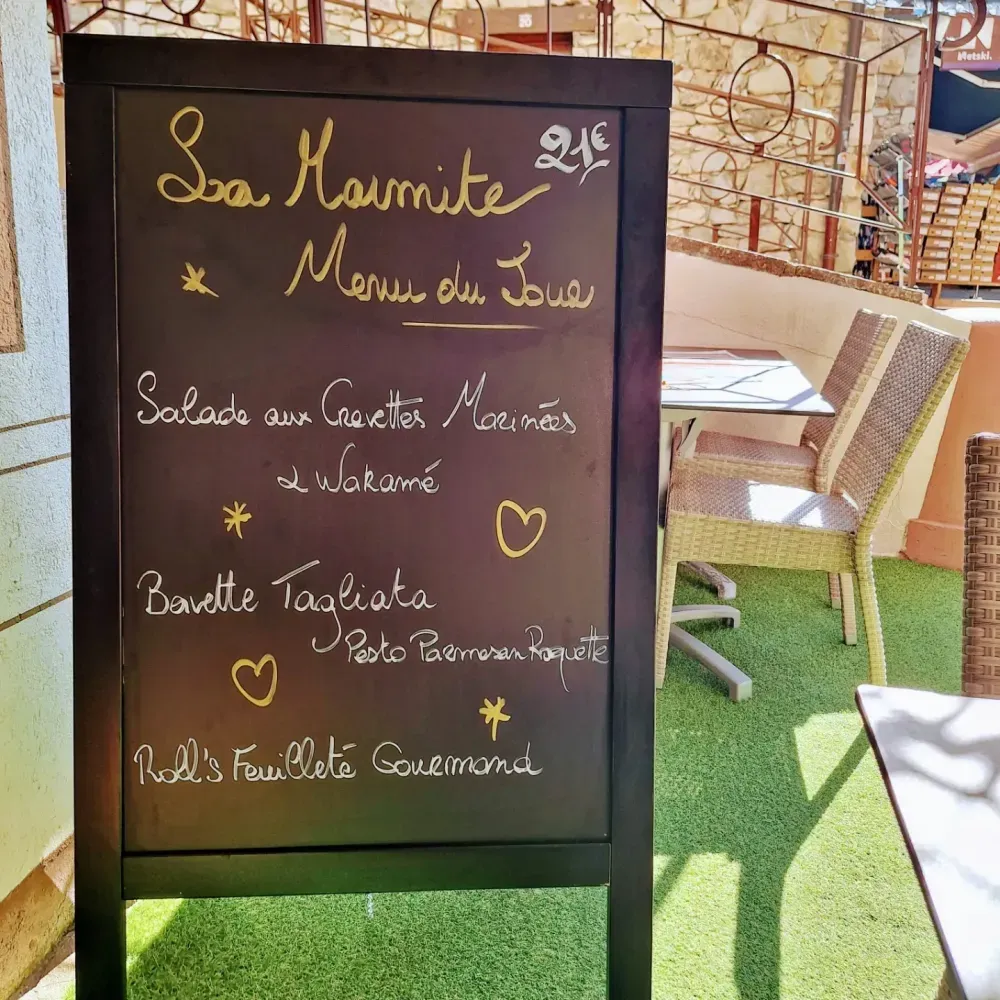 21€
La Marmite
Menu du Jour
Salade aux Crevettes Marinées
& Wakamé
Bavette Tagliata
Pesto Parmesan Roquette
Roll's Feuilleté Gourmand
Metski.